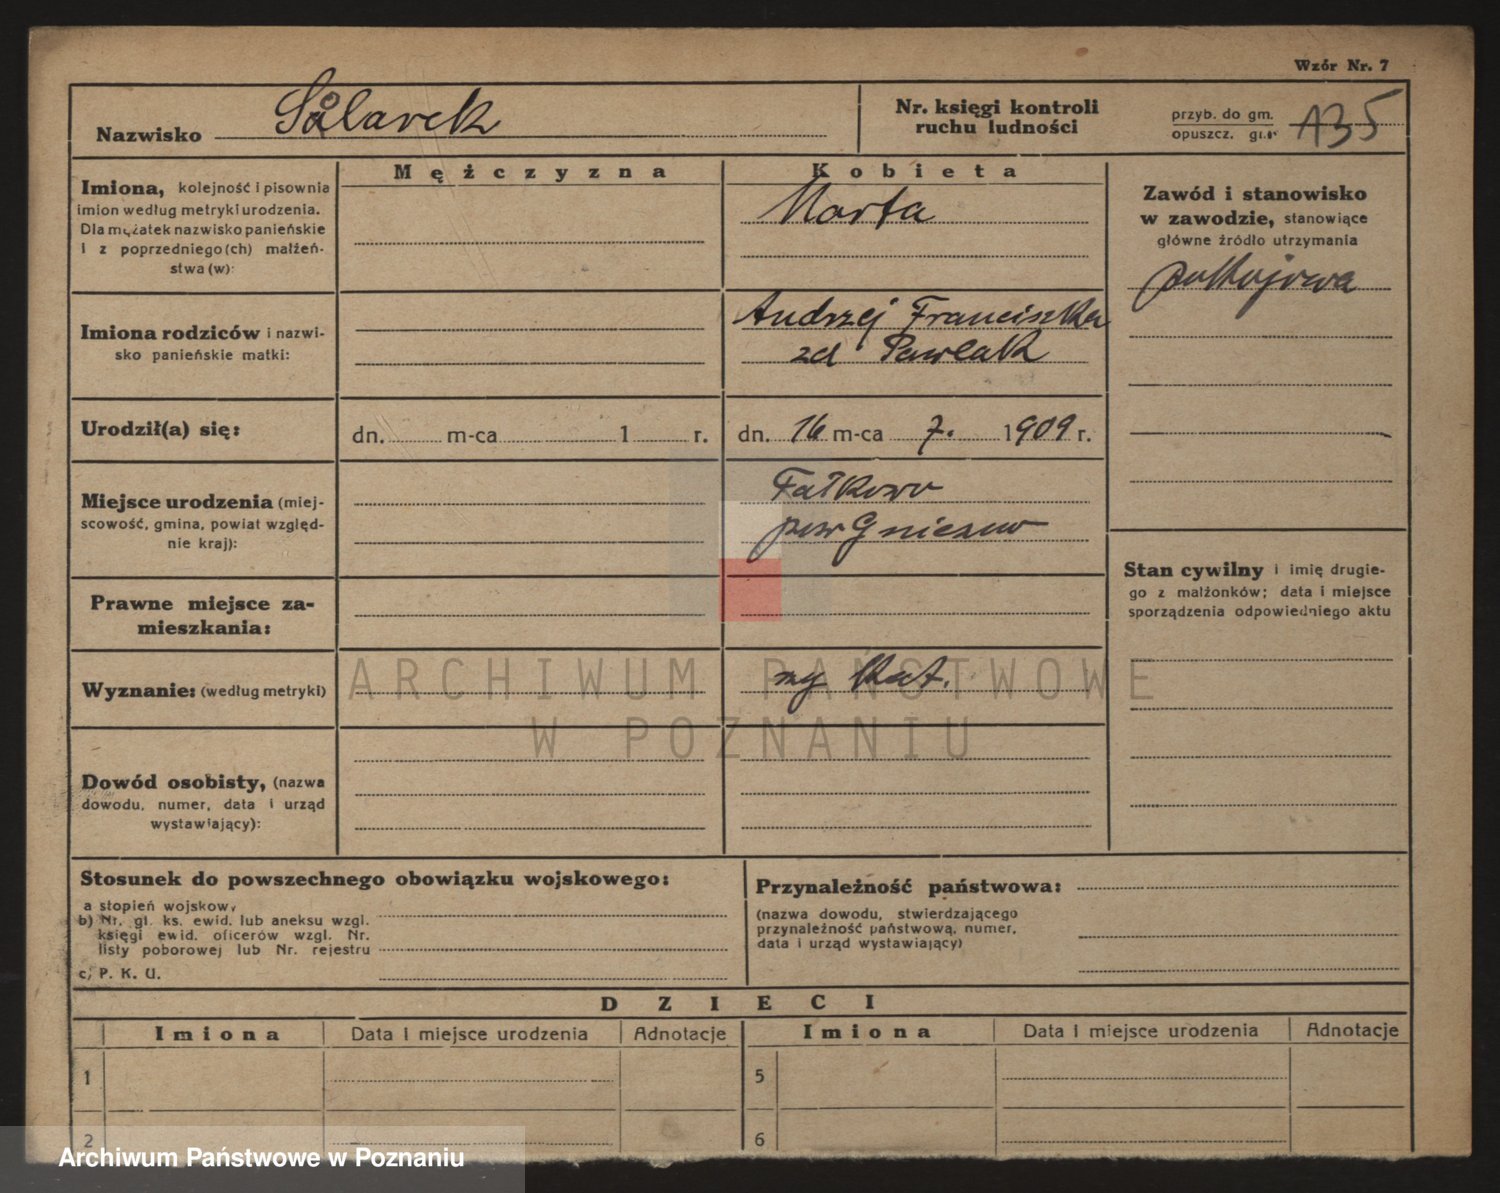 Wzór Nr. 7
Nazwisko Sólarek
Nr. księgi kontroli
ruchu ludności
przyb. do gm.
opuszcz. gm.
135
Mężczyzna
Kobieta
Imiona, kolejność i pisownia
imion według metryki urodzenia.
Dla mężatek nazwisko panieńskie
i z poprzedniego (ch) małżeń-
stwa (w):
Marta
Zawód i stanowisko
w zawodzie, stanowiące
główne źródło utrzymania
pokojowa
Imiona rodziców i nazwi-
sko panieńskie matki:
Andrzej Franciszka
zd Pawlak
Urodził(a) się:
dn. m-ca 1 r.
dn. 16 m-ca 7. 1909 r.
Miejsce urodzenia (miej-
scowość, gmina, powiat względ-
nie kraj):
Fałkowo
pow Gniezno
Stan cywilny i imię drugie-
go z małżonków; data i miejsce
sporządzenia odpowiedniego aktu
Prawne miejsce za-
mieszkania:
Wyznanie: (według metryki)
rzy kat.
ARCHIWUM PAŃSTWOWE
W POZNANIU
Dowód osobisty, (nazwa
dowodu, numer, data i urząd
wystawiający):
Stosunek do powszechnego obowiązku wojskowego:
a stopień wojskowy
b) Nr. gł. ks. ewid. lub aneksu wzgl.
księgi ewid. oficerów wzgl. Nr.
listy poborowej lub Nr. rejestru
c) P. K. U.
Przynależność państwowa:
(nazwa dowodu, stwierdzającego
przynależność państwową, numer,
data i urząd wystawiający)
DZIECI
Imiona Data i miejsce urodzenia Adnotacje Imiona Data i miejsce urodzenia Adnotacje
1 5
2 6
Archiwum Państwowe w Poznaniu